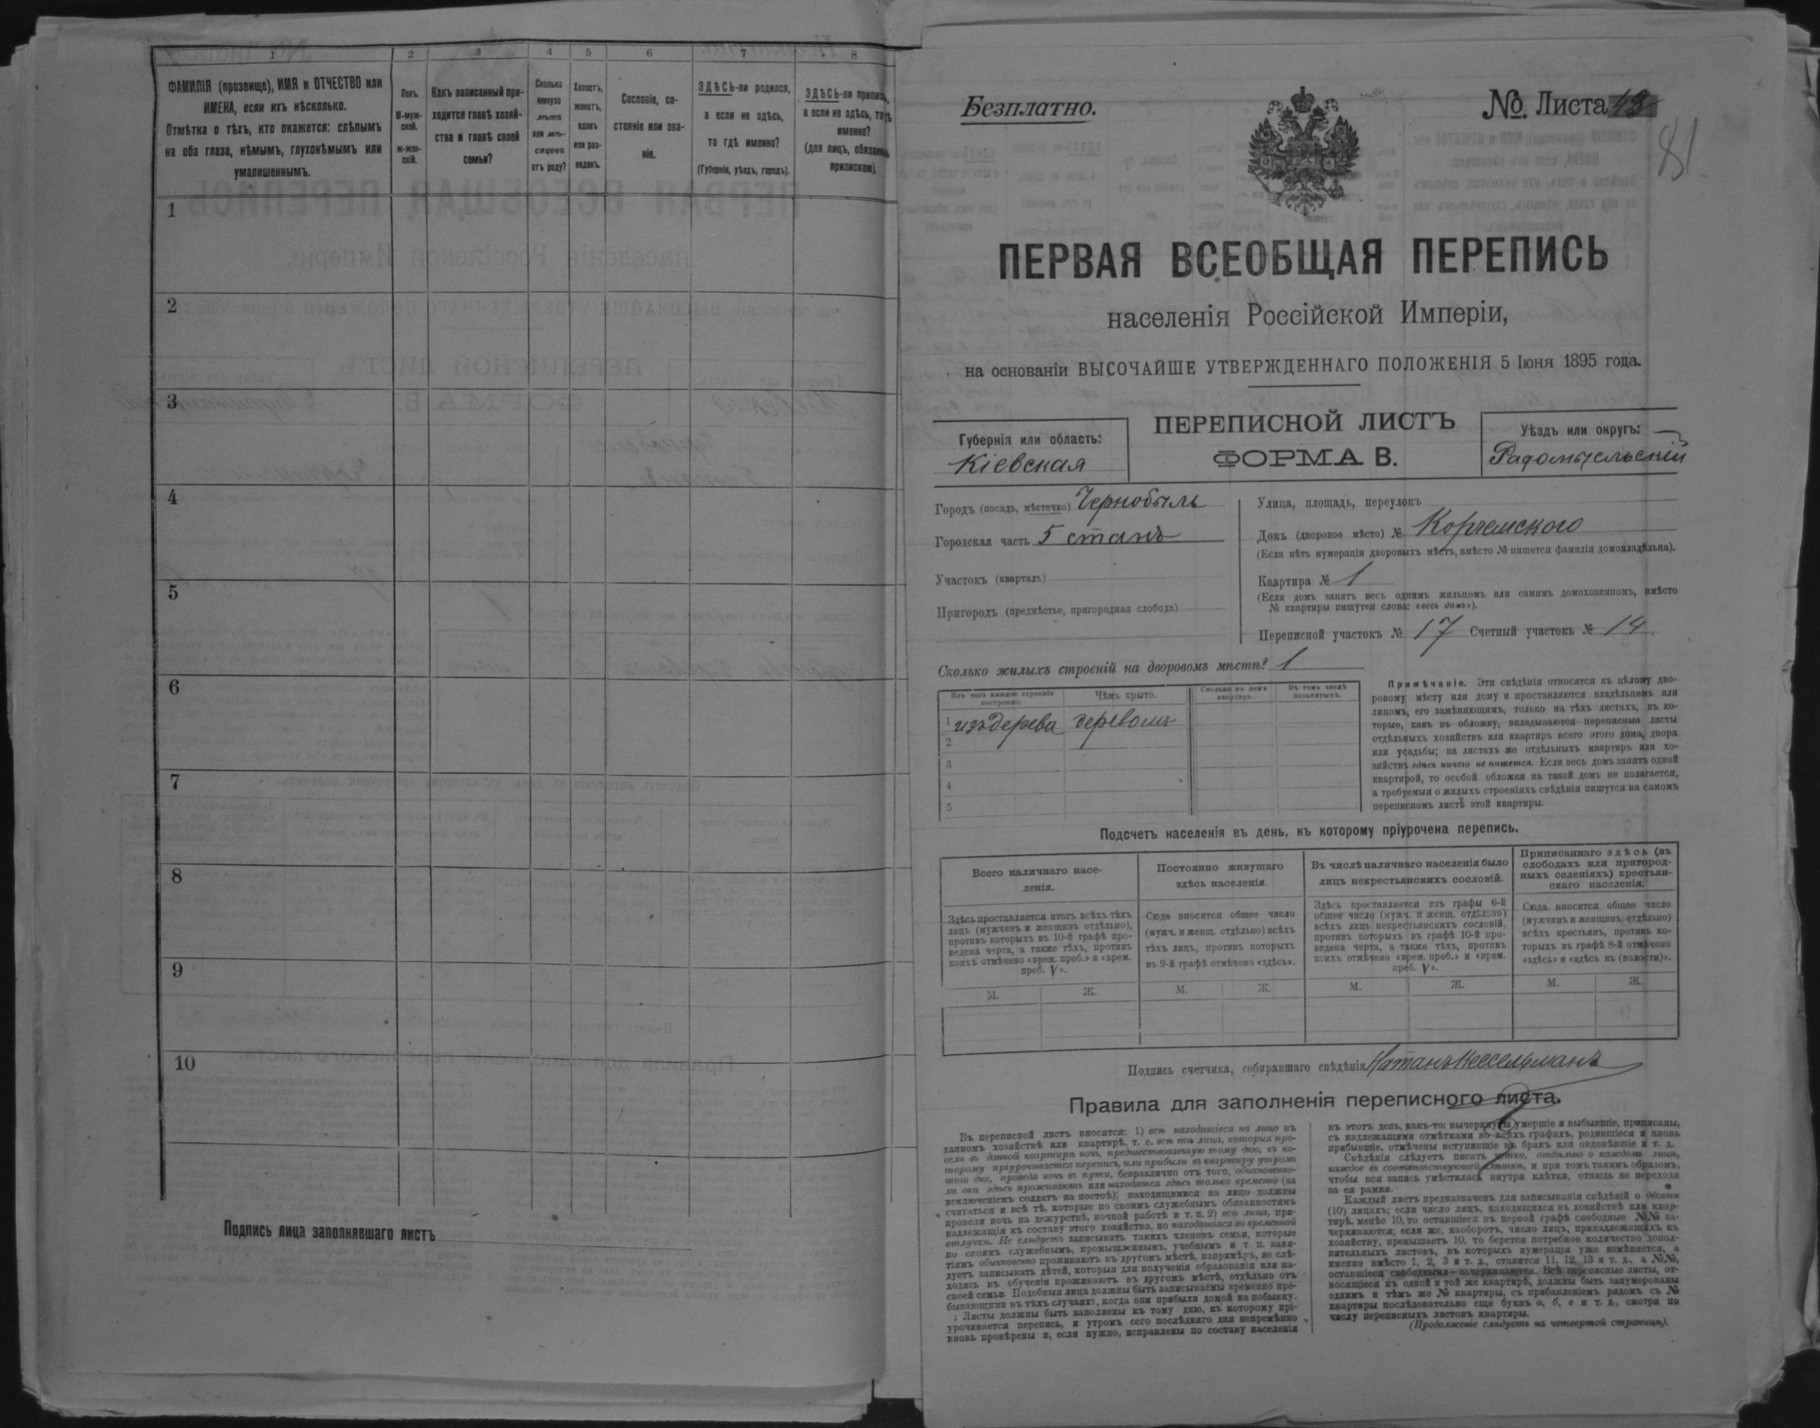 1
2
3
4
5
6
7
8
ФАМИЛІЯ (прозвище), ИМЯ и ОТЧЕСТВО или
ИМЕНА, если ихъ нѣсколько.
Отмѣтка о тѣхъ, кто окажется: слѣпымъ
на оба глаза, нѣмымъ, глухонѣмымъ или
умалишеннымъ.
Полъ.
М-муж-
ской.
Ж-жен-
скій.
Какъ записанный при-
ходится главѣ хозяй-
ства и главѣ своей
семьи?
Сколько
минуло
лѣтъ
или мѣ-
сяцевъ
отъ роду?
Холостъ,
женатъ,
вдовъ
или раз-
веденъ.
Сословіе, со-
стояніе или зва-
ніе.
ЗДѢСЬ-ли родился,
а если не здѣсь,
то гдѣ именно?
(Губернія, уѣздъ, городъ).
ЗДѢСЬ-ли
а если не здѣсь, то
именно?
(для лицъ,
1
2
3
4
5
6
7
8
9
10
Подпись лица заполнявшаго листъ
Безплатно.
№ Листа 42
81
ПЕРВАЯ ВСЕОБЩАЯ ПЕРЕПИСЬ
населенія Россійской Имперіи,
на основаніи ВЫСОЧАЙШЕ УТВЕРЖДЕННАГО ПОЛОЖЕНІЯ 5 Іюня 1895 года.
Губернія или область:
Кіевская
ПЕРЕПИСНОЙ ЛИСТЪ
ФОРМА В.
Уѣздъ или округъ:
Радомысльскій
Городъ (посадъ, мѣстечко) Чернобыль
Городская часть 5 станъ
Участокъ (кварталъ)
Пригородъ (предмѣстье, пригородная слобода)
Улица, площадь, переулокъ
Домъ (дворовое мѣсто) №
(Если нѣтъ нумераціи дворовыхъ мѣстъ, вмѣсто № пишется фамилія домовладѣльца).
Квартира № 1
(Если домъ занятъ весь однимъ жильцомъ или самимъ домохозяиномъ, вмѣсто
№ квартиры пишутся слова: «весь домъ»).
Переписной участокъ № 17 Счетный участокъ № 14
Сколько жилыхъ строеній на дворовомъ мѣстѣ? 1
Изъ чего каждое строеніе
построено.
Чѣмъ крыто.
Сколько въ немъ
квартиръ.
Въ томъ числѣ
незанятыхъ.
1 изъ дерева деревомъ
2
3
4
5
Примѣчаніе. Эти свѣдѣнія относятся къ цѣлому дво-
ровому мѣсту или дому и проставляются владѣльцемъ или
лицомъ, его замѣняющимъ, только на тѣхъ листахъ, въ ко-
торые, какъ въ обложку, вкладываются переписные листы
отдѣльныхъ хозяйствъ или квартиръ всего этого дома, двора
или усадьбы; на листахъ же отдѣльныхъ квартиръ или хо-
зяйствъ здѣсь ничего не пишется. Если весь домъ занятъ одной
квартирой, то особой обложки на такой домъ не полагается,
а требуемыя о жилыхъ строеніяхъ свѣдѣнія пишутся на самомъ
переписномъ листѣ этой квартиры.
Подсчетъ населенія въ день, къ которому пріурочена перепись.
Всего наличнаго насе-
ленія.
Постоянно живущаго
здѣсь населенія.
Въ числѣ наличнаго населенія было
лицъ некрестьянскихъ сословій.
Приписаннаго здѣсь (въ
слободахъ или пригород-
ныхъ селеніяхъ) крестьян-
скаго населенія.
Здѣсь проставляется итогъ всѣхъ тѣхъ
лицъ (мужчинъ и женщинъ отдѣльно),
противъ которыхъ въ 10-й графѣ про-
ведена черта, а также тѣхъ, противъ
коихъ отмѣчено «врем. преб.» и «врем.
преб. V».
Сюда вносится общее число
(мужч. и женщ. отдѣльно) всѣхъ
тѣхъ лицъ, противъ которыхъ
въ 9-й графѣ отмѣчено «здѣсь».
Здѣсь проставляется изъ графы 6-й
общее число (мужч. и женщ. отдѣльно)
всѣхъ лицъ некрестьянскихъ сословій,
противъ которыхъ въ графѣ 10-й про-
ведена черта, а также тѣхъ, противъ
коихъ отмѣчено «врем. преб.» и «врем.
преб. V».
Сюда вносится общее число
(мужчинъ и женщинъ отдѣльно)
всѣхъ крестьянъ, противъ ко-
торыхъ въ графѣ 8-й отмѣчено
«здѣсь» и «здѣсь къ (волости)».
М. Ж. М. Ж. М. Ж. М. Ж.
Подпись счетчика, собиравшаго свѣдѣнія Натанъ Нессельманъ
Правила для заполненія переписного листа.
Въ переписной листъ вносятся: 1) всѣ находящіеся на лицо въ
данномъ хозяйствѣ или квартирѣ, т. е. всѣ тѣ лица, которыя про-
вели въ данной квартирѣ ночь, предшествовавшую тому дню, къ ко-
торому пріурочивается перепись, или прибыли въ квартиру утромъ
того дня, проведя ночь въ пути, безразлично отъ того, обыкновенно-
ли они здѣсь проживаютъ или находятся здѣсь только временно (за
исключеніемъ солдатъ на постоѣ); находящимися на лицо должны
считаться и всѣ тѣ, которые по своимъ служебнымъ обязанностямъ
провели ночь на дежурствѣ, ночной работѣ и т. п. 2) всѣ лица, при-
надлежащія къ составу этого хозяйства, но находящіяся во временной
отлучкѣ. Не слѣдуетъ записывать такихъ членовъ семьи, которые
по своимъ служебнымъ, промышленнымъ, учебнымъ и т. п. заня-
тіямъ обыкновенно проживаютъ въ другомъ мѣстѣ, напримѣръ, не слѣ-
дуетъ записывать дѣтей, которыя для полученія образованія или на-
ходясь въ обученіи проживаютъ въ другомъ мѣстѣ, отдѣльно отъ
своей семьи. Подобныя лица должны быть записываемы временно пре-
бывающими въ тѣхъ случаяхъ, когда они прибыли домой на побывку.
Листы должны быть заполнены къ тому дню, къ которому прі-
урочивается перепись, и утромъ сего послѣдняго дня непремѣнно
вновь провѣрены и, если нужно, исправлены по составу населенія
въ этотъ день, какъ-то: вычеркнуты умершіе и выбывшіе, приписаны,
съ надлежащими отмѣтками во всѣхъ графахъ, родившіеся и вновь
прибывшіе, отмѣчены вступившіе въ бракъ или овдовѣвшіе и т. д.
Свѣдѣнія слѣдуетъ писать четко, отдѣльно о каждомъ лицѣ,
каждое въ соответствующей клѣткѣ, и при томъ такимъ образомъ,
чтобы вся запись умѣстилась внутри клѣтки, отнюдь не переходя
за ея рамки.
Каждый листъ предназначенъ для записыванія свѣдѣній о десяти
(10) лицахъ; если число лицъ, находящихся въ хозяйствѣ или квар-
тирѣ, менѣе 10, то оставшіеся въ первой графѣ свободные №№ за-
черкиваются; если же, наоборотъ, число лицъ, принадлежащихъ къ
хозяйству, превышаетъ 10, то берется потребное количество допол-
нительныхъ листовъ, въ которыхъ нумерація уже измѣняется, а
именно вмѣсто 1, 2, 3 и т. д., ставится 11, 12, 13 и т. д., а №№,
оставшіеся свободными—зачеркиваются. Всѣ переписные листы, от-
носящіеся къ одной и той же квартирѣ, должны быть занумерованы
однимъ и тѣмъ же № квартиры, съ прибавленіемъ рядомъ съ №
квартиры послѣдовательно еще буквъ а, б, в и т. д., смотря по
числу переписныхъ листовъ квартиры.
(Продолженіе слѣдуетъ на четвертой страницѣ).